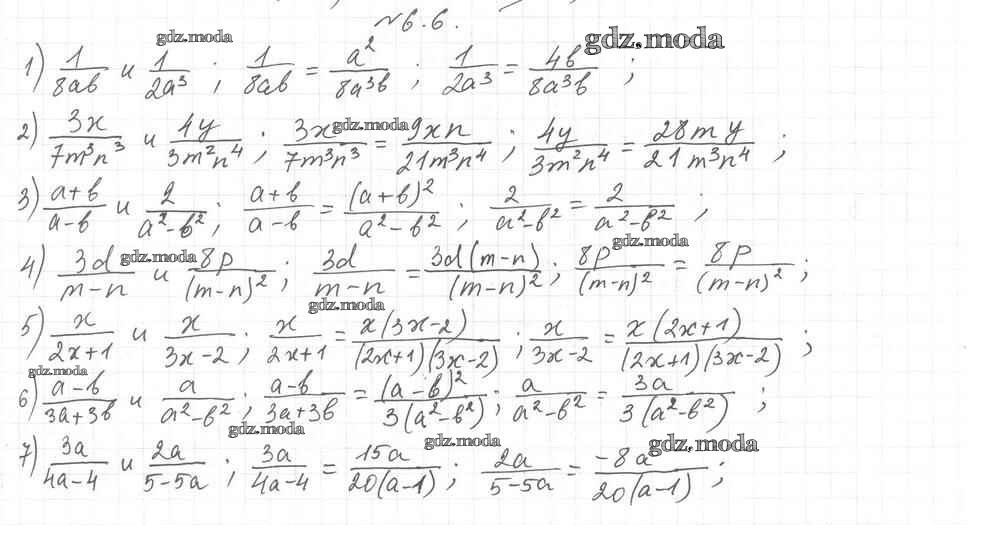 №6.6.
gdz.moda gdz.moda
1) 1/(8ab) и 1/(2a³) ; 1/(8ab) = a²/(8a³b) ; 1/(2a³) = 4b/(8a³b) ;
2) 3x/(7m³n³) и 4y/(3m²n⁴) ; 3x/(7m³n³) = 9xn/(21m³n⁴) ; 4y/(3m²n⁴) = 28my/(21m³n⁴) ;
gdz.moda
3) (a+b)/(a-b) и 2/(a²-b²) ; (a+b)/(a-b) = (a+b)²/(a²-b²) ; 2/(a²-b²) = 2/(a²-b²) ;
gdz.moda gdz.moda
4) 3d/(m-n) и 8p/(m-n)² ; 3d/(m-n) = 3d(m-n)/(m-n)² ; 8p/(m-n)² = 8p/(m-n)² ;
gdz.moda
5) x/(2x+1) и x/(3x-2) ; x/(2x+1) = x(3x-2)/((2x+1)(3x-2)) ; x/(3x-2) = x(2x+1)/((2x+1)(3x-2)) ;
gdz.moda
6) (a-b)/(3a+3b) и a/(a²-b²) ; (a-b)/(3a+3b) = (a-b)²/(3(a²-b²)) ; a/(a²-b²) = 3a/(3(a²-b²)) ;
gdz.moda gdz.moda gdz.moda
7) 3a/(4a-4) и 2a/(5-5a) ; 3a/(4a-4) = 15a/(20(a-1)) ; 2a/(5-5a) = -8a/(20(a-1)) ;